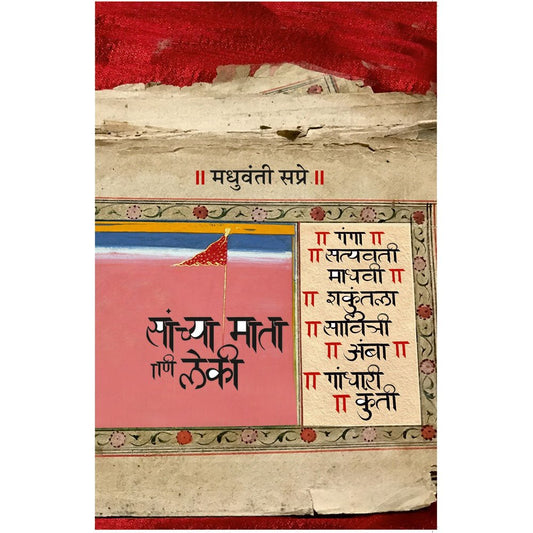 ॥ मधुवंती सप्रे ॥
सांच्या माता
णि लेकी
॥ गंगा ॥
॥ सत्यवती
माधवी ॥
॥ शकुंतला
॥ सावित्री
॥ अंबा ॥
॥ गांधारी
॥ कुंती